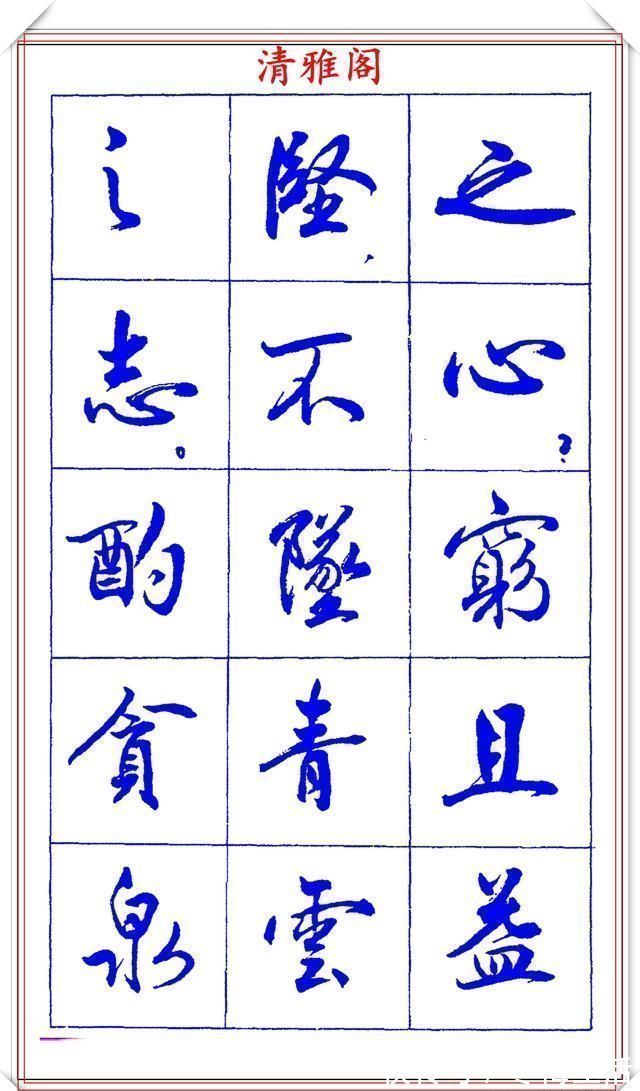 清雅阁
之心？窮且益
堅，不墜青雲
之志。酌貪泉